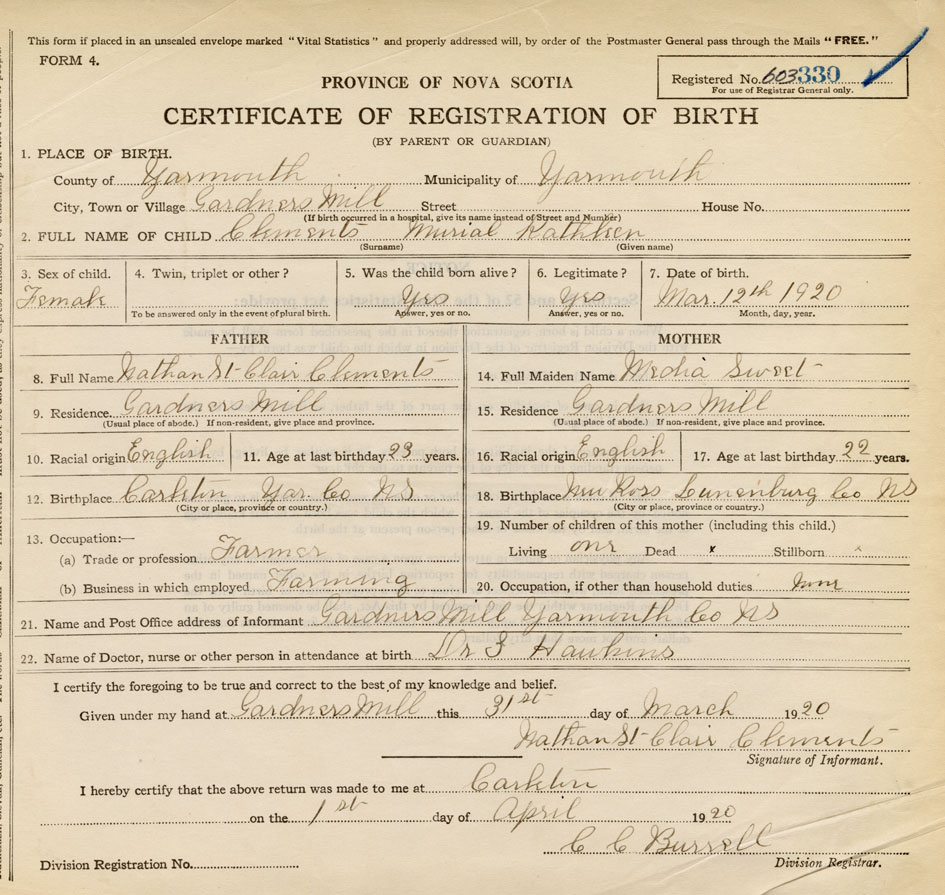 This form if placed in an unsealed envelope marked "Vital Statistics" and properly addressed will, by order of the Postmaster General pass through the Mails "FREE."
FORM 4.
Registered No. 603330
For use of Registrar General only.
PROVINCE OF NOVA SCOTIA
CERTIFICATE OF REGISTRATION OF BIRTH
(BY PARENT OR GUARDIAN)
1. PLACE OF BIRTH.
County of Yarmouth Municipality of Yarmouth
City, Town or Village Gardners Mill Street House No.
(If birth occurred in a hospital, give its name instead of Street and Number)
2. FULL NAME OF CHILD Clements Murial Kathleen
(Surname) (Given name)
3. Sex of child. 4. Twin, triplet or other? 5. Was the child born alive? 6. Legitimate? 7. Date of birth.
Female Yes Yes Mar. 12th 1920
To be answered only in the event of plural birth. Answer, yes or no. Answer, yes or no. Month, day, year.
FATHER MOTHER
8. Full Name Nathan St Clair Clements 14. Full Maiden Name Media Sweet
9. Residence. Gardners Mill 15. Residence Gardners Mill
(Usual place of abode.) If non-resident, give place and province. (Usual place of abode.) If non-resident, give place and province.
10. Racial origin English 11. Age at last birthday 23 years. 16. Racial origin English 17. Age at last birthday 22 years.
12. Birthplace Carleton Yar. Co NS 18. Birthplace New Ross Lunenburg Co NS
(City or place, province or country.) (City or place, province or country.)
13. Occupation:— 19. Number of children of this mother (including this child.)
(a) Trade or profession Farmer Living one Dead x Stillborn
(b) Business in which employed Farming 20. Occupation, if other than household duties None
21. Name and Post Office address of Informant Gardners Mill Yarmouth Co NS
22. Name of Doctor, nurse or other person in attendance at birth Dr Hawkins
I certify the foregoing to be true and correct to the best of my knowledge and belief.
Given under my hand at Gardners Mill this 31st day of March 1920
Nathan St Clair Clements
Signature of Informant.
I hereby certify that the above return was made to me at Carleton
on the 1st day of April 1920
C C Burrell
Division Registration No. Division Registrar.